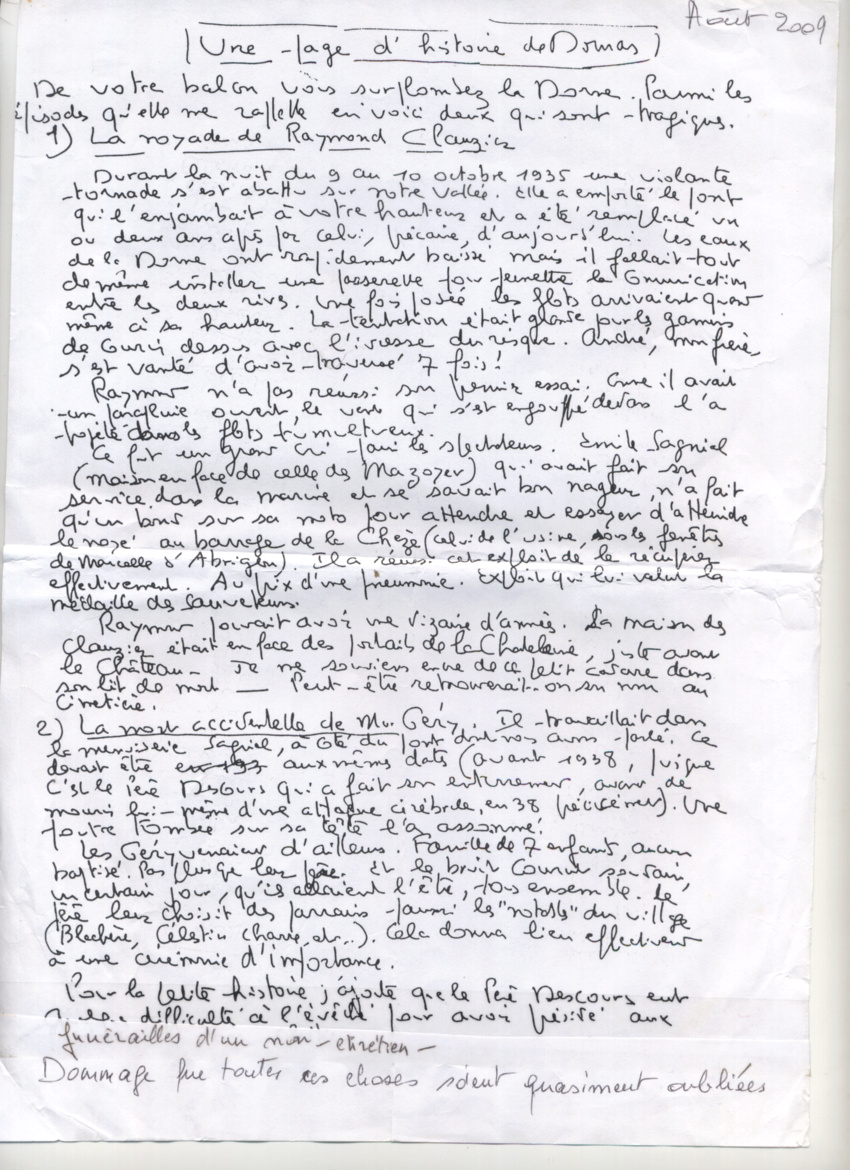 Août 2009
Une page d'histoire de Dornas
De votre balcon vous surplombez la Dorne. Parmi les
épisodes qu'elle me rappelle en voici deux qui sont tragiques.
1) La noyade de Raymond Clauzier
Durant la nuit du 9 au 10 octobre 1935 une violente
tornade s'est abattu sur notre vallée. Elle a emporté le pont
qui l'enjambait à votre hauteur et a été remplacé un
ou deux ans après par celui, précaire, d'aujourd'hui. Les eaux
de la Dorne ont rapidement baissé mais il fallait tout
de même installer une passerelle pour permettre la communication
entre les deux rives. Une fois posée les flots arrivaient quand
même à sa hauteur. La tentation était grande pour les gamins
de courir dessus avec l'ivresse du risque. André, mon frère,
s'est vanté d'avoir traversé 7 fois!
Raymond n'a pas réussi son premier essai. Comme il avait
un parapluie ouvert, le vent qui s'est engouffré dedans l'a
projeté dans les flots tumultueux.
Ce fut un grand cri parmi les spectateurs. Emile Sagniel
(maison en face de celle des Mazoyer) qui avait fait son
service dans la marine et se savait bon nageur, n'a fait
qu'un bond sur sa moto pour attendre et essayer d'atteindre
le noyé au barrage de la Chèze (celui de l'usine, sous les fenêtres
de Marcelle d'Abrigeon). Il a réussi cet exploit de le récupérer
effectivement. Au prix d'une pneumonie. Exploit qui lui valut la
médaille des sauveteurs.
Raymond pouvait avoir une dizaine d'années. La maison des
Clauzier était en face des portails de la Chatelaine, juste avant
le Château - Je me souviens encore de ce petit cadavre dans
son lit de mort — Peut-être retrouverait-on son nom au
cimetière.
2) La mort accidentelle de Mr. Géry. Il travaillait dans
la menuiserie Sagniel, à côté du pont dont nous avons parlé. Ce
devait être aux mêmes dates (avant 1938, puisque
c'est le Père Descours qui a fait son enterrement, avant de
mourir lui-même d'une attaque cérébrale, en 38 précisément). Une
poutre tombée sur sa tête l'a assommé.
Les Géry venaient d'ailleurs. Famille de 7 enfants, aucun
baptisé. Pas plus que leur père. Et le bruit courut soudain,
un certain jour, qu'ils allaient l'être, tous ensemble. Le
père leur choisit des parrains parmi les "notables" du village
(Blachère, Célestin Charre, etc..). Cela donna lieu effectivement
à une cérémonie d'importance.
Pour la petite histoire j'ajoute que le Père Descours eut
difficulté à l'évêché pour avoir présidé aux
funérailles d'un non-chrétien -
Dommage que toutes ces choses soient quasiment oubliées